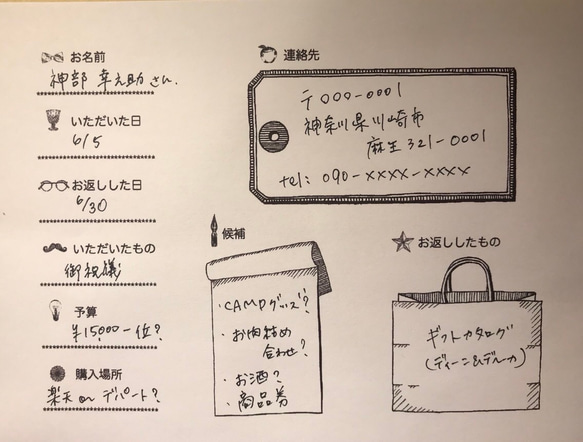 お名前
神部 幸之助 さん
いただいた日
6/5
お返しした日
6/30
いただいたもの
御祝儀
予算
¥15,000- 位?
購入場所
楽天 or デパート?
連絡先
〒000-0001
神奈川県川崎市
麻生321-0001
tel: 090-××××-××××
候補
・CAMPグッズ?
・お肉詰め
合わせ?
・お酒?
・商品券
お返ししたもの
ギフトカタログ
(ディーン&デルーカ)